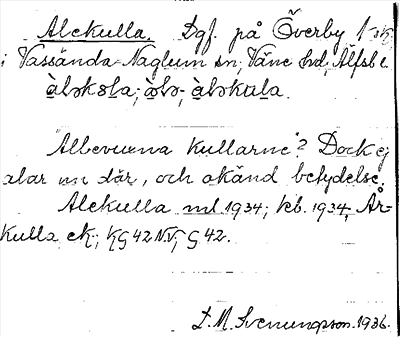 Alekulla. Dgf. på Överby
i Vassända-Naglum sn, Väne hd, Älfsb l.
àləkɵla; àlə-, àləkula.
"Albevuxna kullarne"? Dock ej
alar nu där, och okänd betydelse.
Alekulla ml. 1934; kb. 1934, År-
kulla ek; KG 42 NV; G 42.
L. M. Svenungsson. 1936.